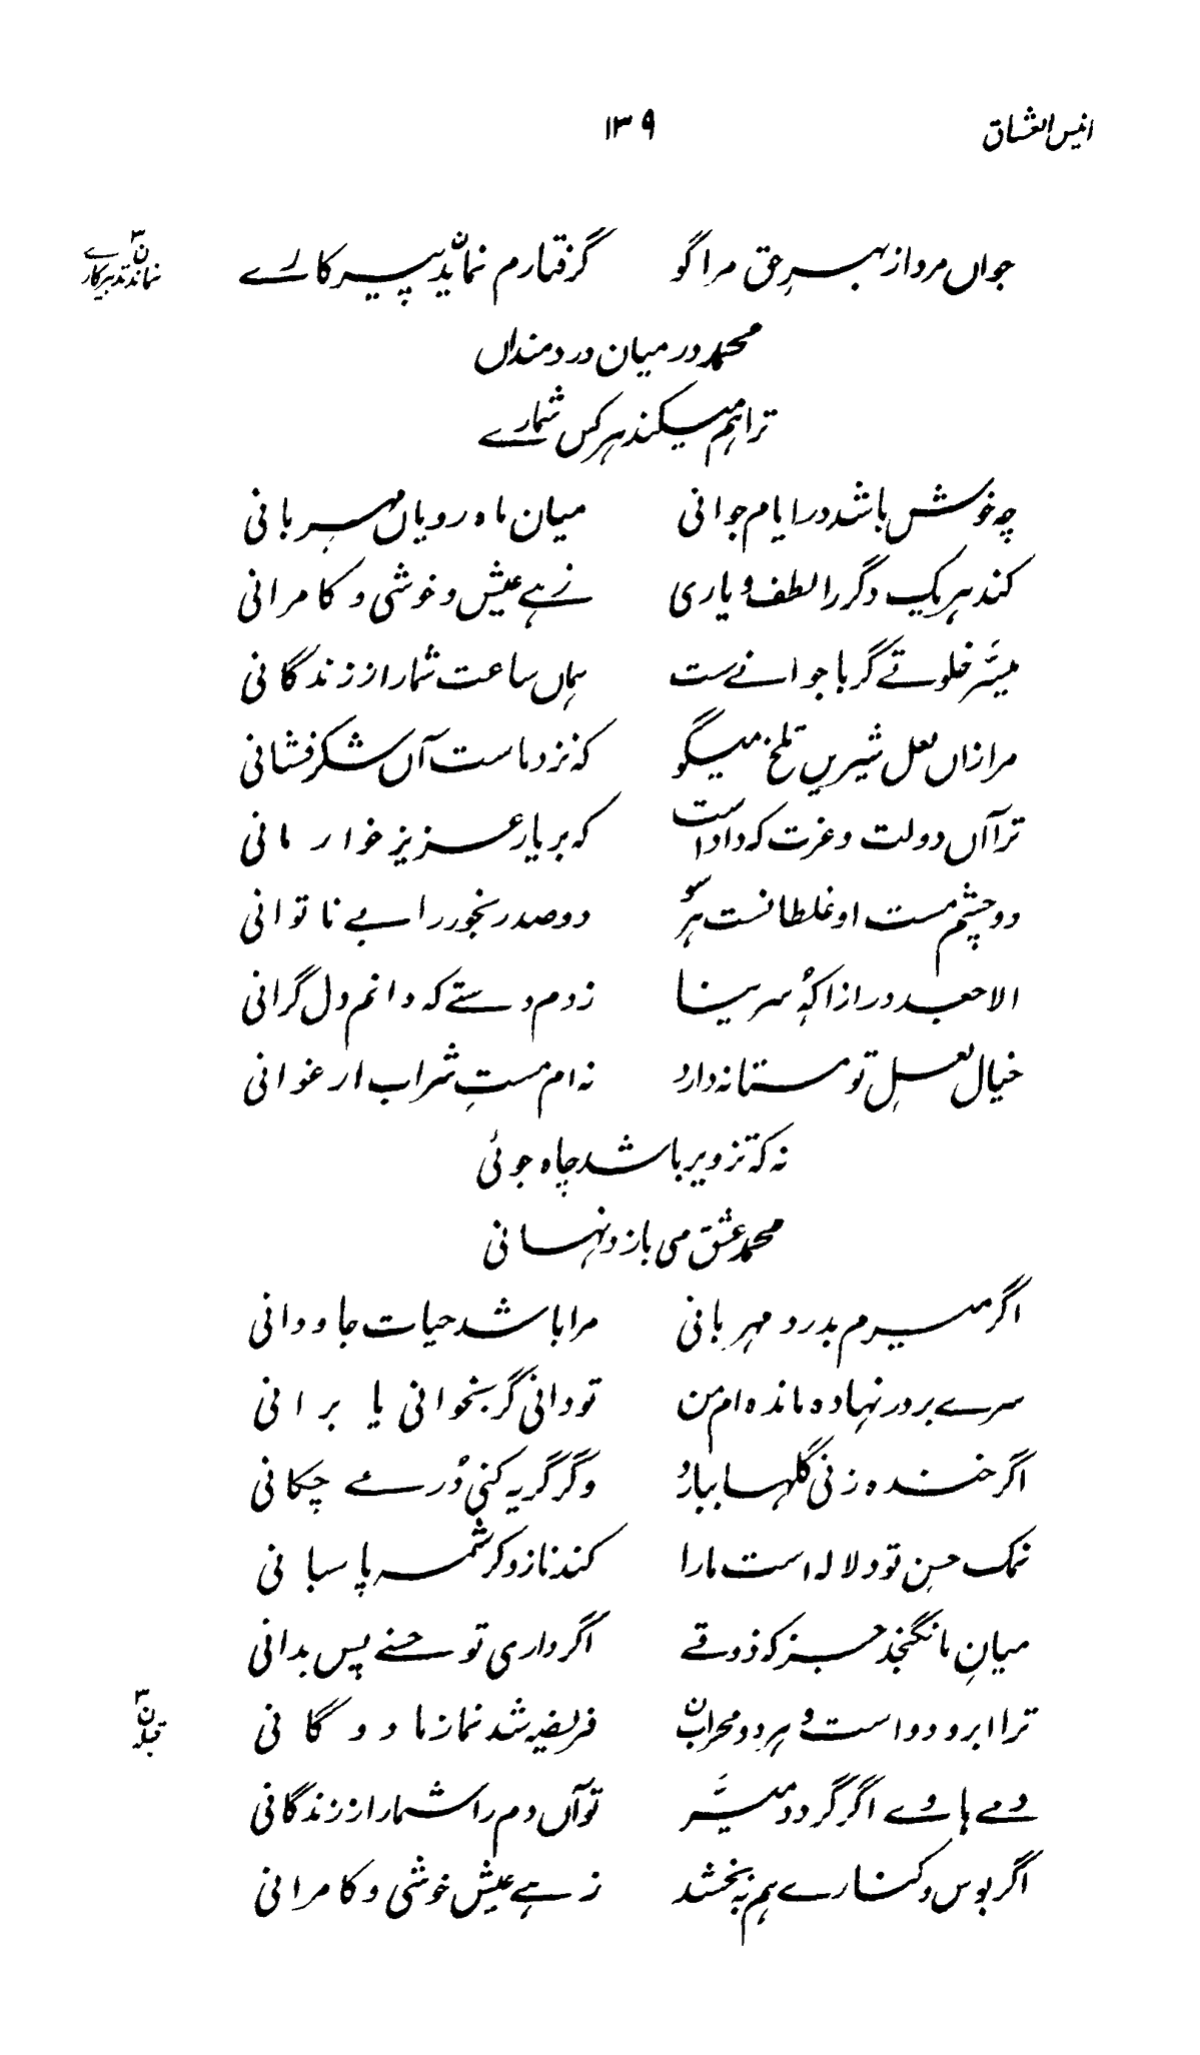 انیس العشاق ۱۳۹
جواں مرد از بہرِ حق مرا گو گرفتارم نماید پیر کارے
ن۳ نماند تدبیر کارے
محمد در میان دردمنداں
ترا ہم میکند ہر کس شمارے
چہ خوش باشد در ایام جوانی میان ماہ رویاں مہربانی
کند ہر یک دگر را لطف و یاری زہے عیش و خوشی و کامرانی
میسّر خلوتے گر با جوانے ست ہماں ساعت شمار از زندگانی
مرا زاں لعل شیریں تلخ میگو کہ نزد ماست آں شکر فشانی
ترا آں دولت و عزت کہ داد است کہ بر یار عزیز خوار مانی
دو چشم مست او غلطانست ہر سو دو صد رنجور را بے ناتوانی
الا جعد دراز اکہ سر بینا زدم دستے کہ دانم دل گرانی
خیال لعلِ تو مستانہ دارد نہ ام مستِ شراب ارغوانی
نہ کہ تزویر باشد چاہ جوئی
محمد عشق می بازد نہانی
اگر میرم بدرد مہربانی مرا باشد حیات جاودانی
سرے بر در نہادہ ماندہ ام من تو دانی گر بخوانی یا برانی
اگر خندہ زنی گلہا ببارد وگر گریہ کنی دُرے چکانی
نمک حسنِ تو دلالہ است مارا کند ناز و کرشمہ پاسبانی
میانِ ما نگنجد جز کہ ذوقے اگر داری تو حسنے پس بدانی
ترا ابرو دو است و ہر دو محراب فریضہ شد نماز ما دوگانی
ن۳ قبلہ
دمے با وے اگر گردد میسّر تو آں دم را شمار از زندگانی
اگر بوس و کنارے ہم بہ بخشد زہے عیش خوشی و کامرانی